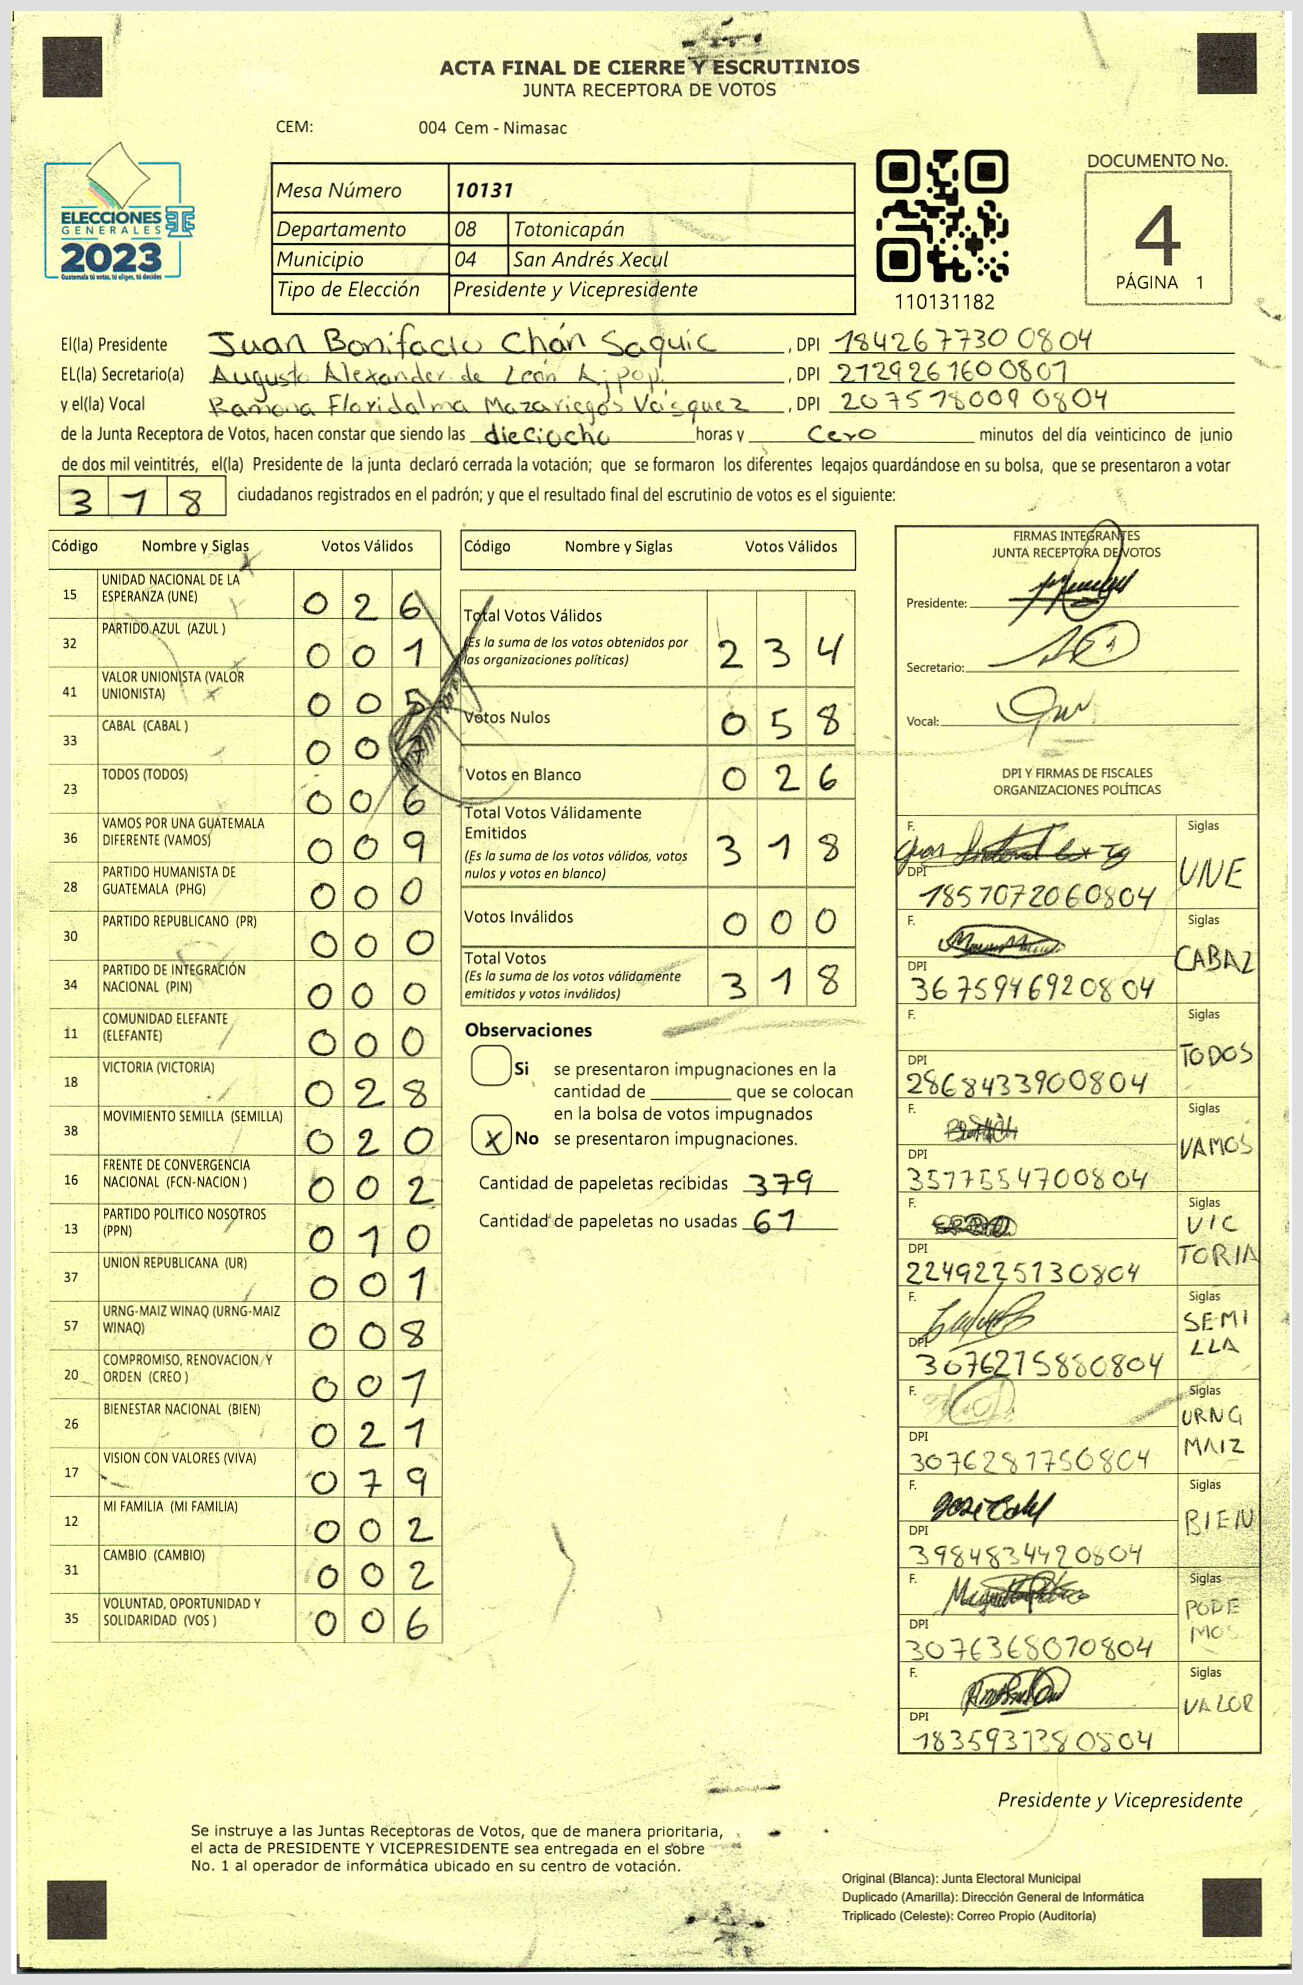 ACTA FINAL DE CIERRE Y ESCRUTINIOS
JUNTA RECEPTORA DE VOTOS
CEM: 004 Cem - Nimasac
ELECCIONES
GENERALES
2023
Guatemala tú votas, tú eliges, tú decides
Mesa Número 10131
Departamento 08 Totonicapán
Municipio 04 San Andrés Xecul
Tipo de Elección Presidente y Vicepresidente
110131182
DOCUMENTO No.
4
PÁGINA 1
El(la) Presidente Juan Bonifacio Chán Saquic, DPI 184267730 0804
EL(la) Secretario(a) Augusto Alexander de León Ajpop. , DPI 2129261600801
y el(la) Vocal Ramona Floridalma Mazariegos Vásquez, DPI 207518009 0804
de la Junta Receptora de Votos, hacen constar que siendo las dieciocho horas y cero minutos del día veinticinco de junio
de dos mil veintitrés, el(la) Presidente de la junta declaró cerrada la votación; que se formaron los diferentes legajos guardándose en su bolsa, que se presentaron a votar
318 ciudadanos registrados en el padrón; y que el resultado final del escrutinio de votos es el siguiente:
Código Nombre y Siglas Votos Válidos
15 UNIDAD NACIONAL DE LA ESPERANZA (UNE) 026
32 PARTIDO AZUL (AZUL ) 001
41 VALOR UNIONISTA (VALOR UNIONISTA) 005
33 CABAL (CABAL ) 00
23 TODOS (TODOS) 006
36 VAMOS POR UNA GUATEMALA DIFERENTE (VAMOS) 009
28 PARTIDO HUMANISTA DE GUATEMALA (PHG) 000
30 PARTIDO REPUBLICANO (PR) 000
34 PARTIDO DE INTEGRACIÓN NACIONAL (PIN) 000
11 COMUNIDAD ELEFANTE (ELEFANTE) 000
18 VICTORIA (VICTORIA) 028
38 MOVIMIENTO SEMILLA (SEMILLA) 020
16 FRENTE DE CONVERGENCIA NACIONAL (FCN-NACION ) 002
13 PARTIDO POLITICO NOSOTROS (PPN) 010
37 UNION REPUBLICANA (UR) 001
57 URNG-MAIZ WINAQ (URNG-MAIZ WINAQ) 008
20 COMPROMISO, RENOVACION, Y ORDEN (CREO ) 001
26 BIENESTAR NACIONAL (BIEN) 021
17 VISION CON VALORES (VIVA) 079
12 MI FAMILIA (MI FAMILIA) 002
31 CAMBIO (CAMBIO) 002
35 VOLUNTAD, OPORTUNIDAD Y SOLIDARIDAD (VOS ) 006
Código Nombre y Siglas Votos Válidos
Total Votos Válidos 234
(Es la suma de los votos obtenidos por
las organizaciones políticas)
Votos Nulos 058
Votos en Blanco 026
Total Votos Válidamente
Emitidos 318
(Es la suma de los votos válidos, votos
nulos y votos en blanco)
Votos Inválidos 000
Total Votos 318
(Es la suma de los votos válidamente
emitidos y votos inválidos)
Observaciones
Si se presentaron impugnaciones en la
cantidad de ________ que se colocan
en la bolsa de votos impugnados
X No se presentaron impugnaciones.
Cantidad de papeletas recibidas 379
Cantidad de papeletas no usadas 61
FIRMAS INTEGRANTES
JUNTA RECEPTORA DE VOTOS
Presidente:
Secretario:
Vocal:
DPI Y FIRMAS DE FISCALES
ORGANIZACIONES POLÍTICAS
F. Siglas
DPI 1857072060804 UNE
F. Siglas
DPI 3675946920804 CABAL
F. Siglas
DPI 2868433900804 TODOS
F. Siglas
DPI 3577554700804 VAMOS
F. Siglas
DPI 2249225130804 VICTORIA
F. Siglas
DPI 3076275880804 SEMILLA
F. Siglas
DPI 3076281750804 URNG MAIZ
F. Siglas
DPI 3984834420804 BIEN
F. Siglas
DPI 3076368070804 PODEMOS
F. Siglas
DPI 1835931380804 VALOR
Presidente y Vicepresidente
Se instruye a las Juntas Receptoras de Votos, que de manera prioritaria,
el acta de PRESIDENTE Y VICEPRESIDENTE sea entregada en el sobre
No. 1 al operador de informática ubicado en su centro de votación.
Original (Blanca): Junta Electoral Municipal
Duplicado (Amarilla): Dirección General de Informática
Triplicado (Celeste): Correo Propio (Auditoría)